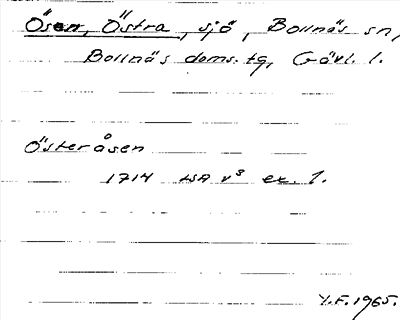 Ösen, Östra, sjö, Bollnäs sn,
Bollnäs doms.tg, Gävl. l.
Österåsen
1714 LSA v³ ex. 1.
Y.F. 1965.